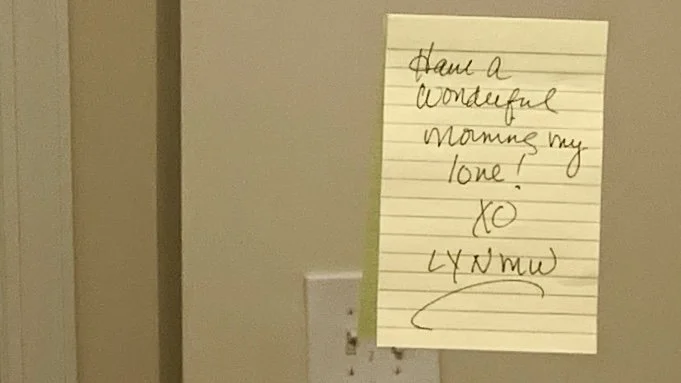 Have a
wonderful
morning my
love!
XO
LYNMW